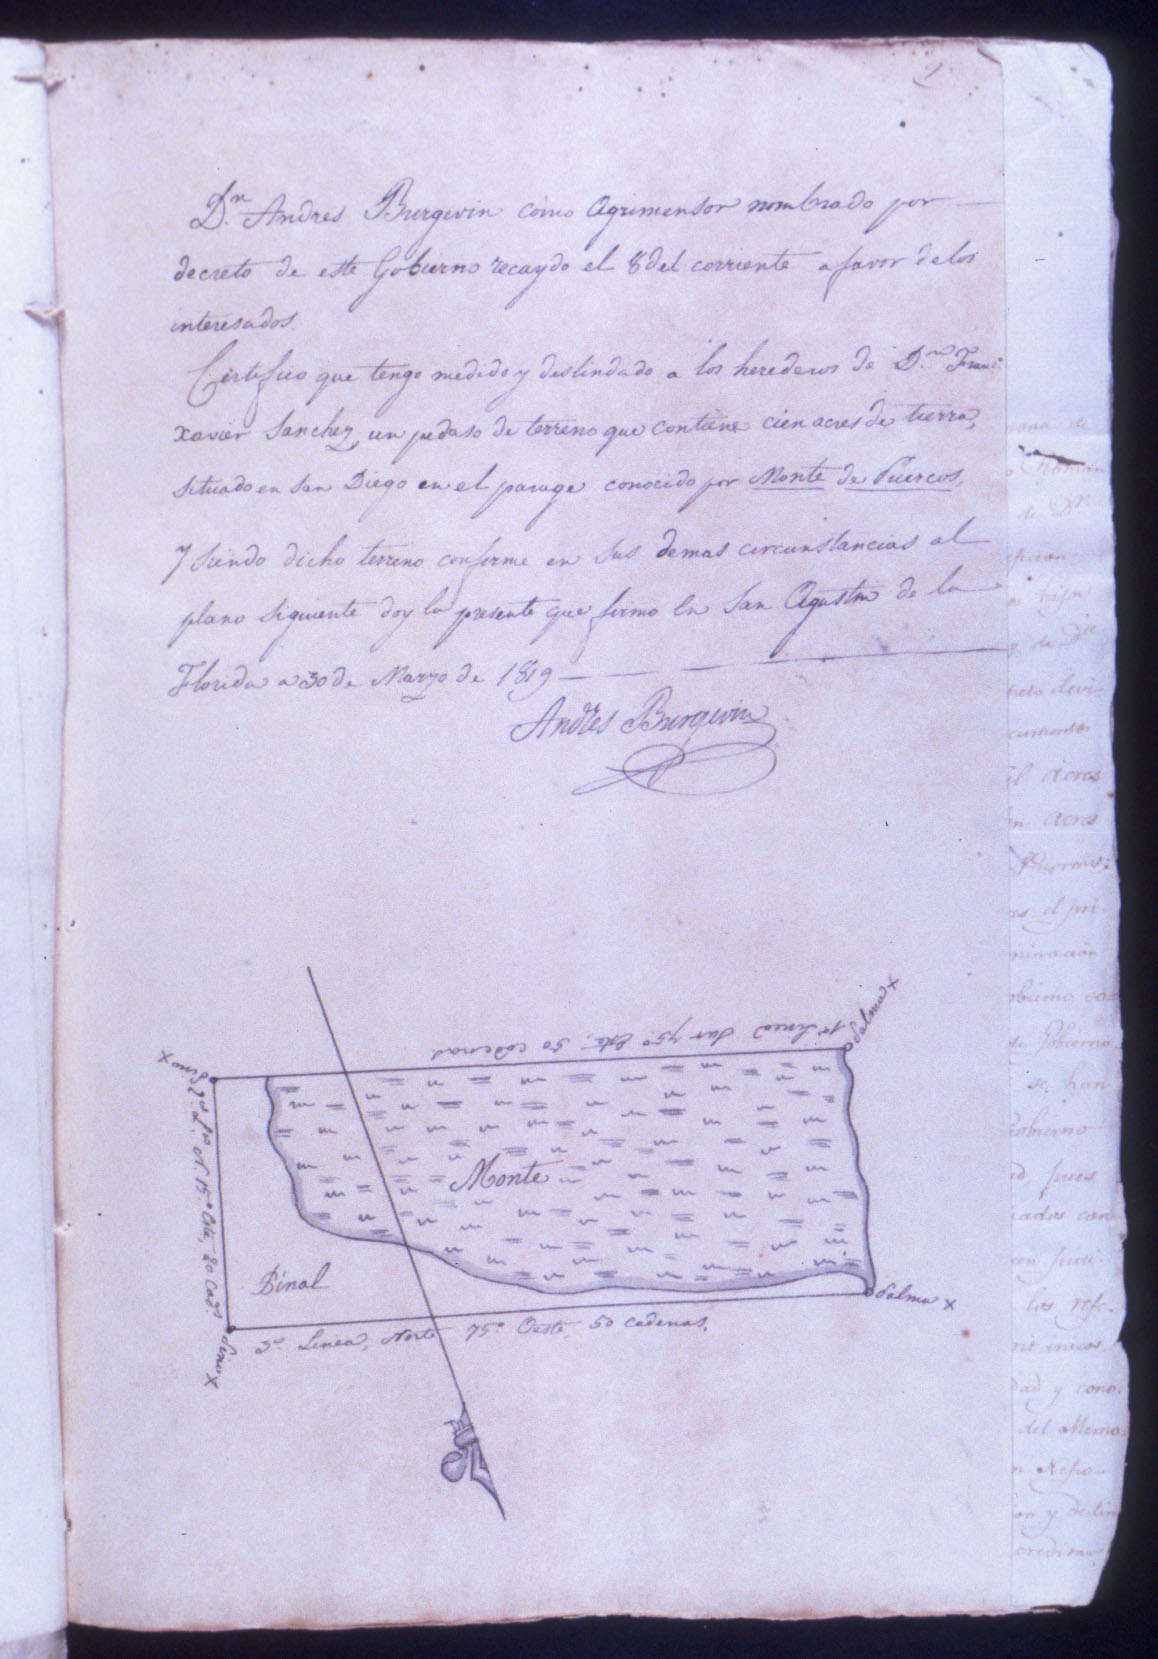 1
D.n Andres Burgevin como Agrimensor nombrado por
decreto de este Gobierno recaydo el 8 del corriente a favor de los
interesados.
Certifico que tengo medido y deslindado a los herederos de D.n Franc.o
Xavier Sanchez, un pedaso de terreno que contiene cien acres de tierra,
situado en San Diego en el parage conocido por Monte de Puercos,
Y siendo dicho terreno conforme en sus demas circunstancias al
plano siguiente doy la presente que firmo en San Agustin de la
Florida a 30 de Marzo de 1819
Andres Burgevin
1a Linea Sur 75° Este, 50 cadenas
Palma x
Pino x
2a L.a N. 15° Este, 20 Cad.s
Monte
Pinal
Palma x
3a Linea, Norte 75° Oeste, 50 cadenas.
Pino x
de D.n
Acres
en Acres
Gobierno
se han
Gobierno
pues
los refe-
dad y cono-
del Memo-